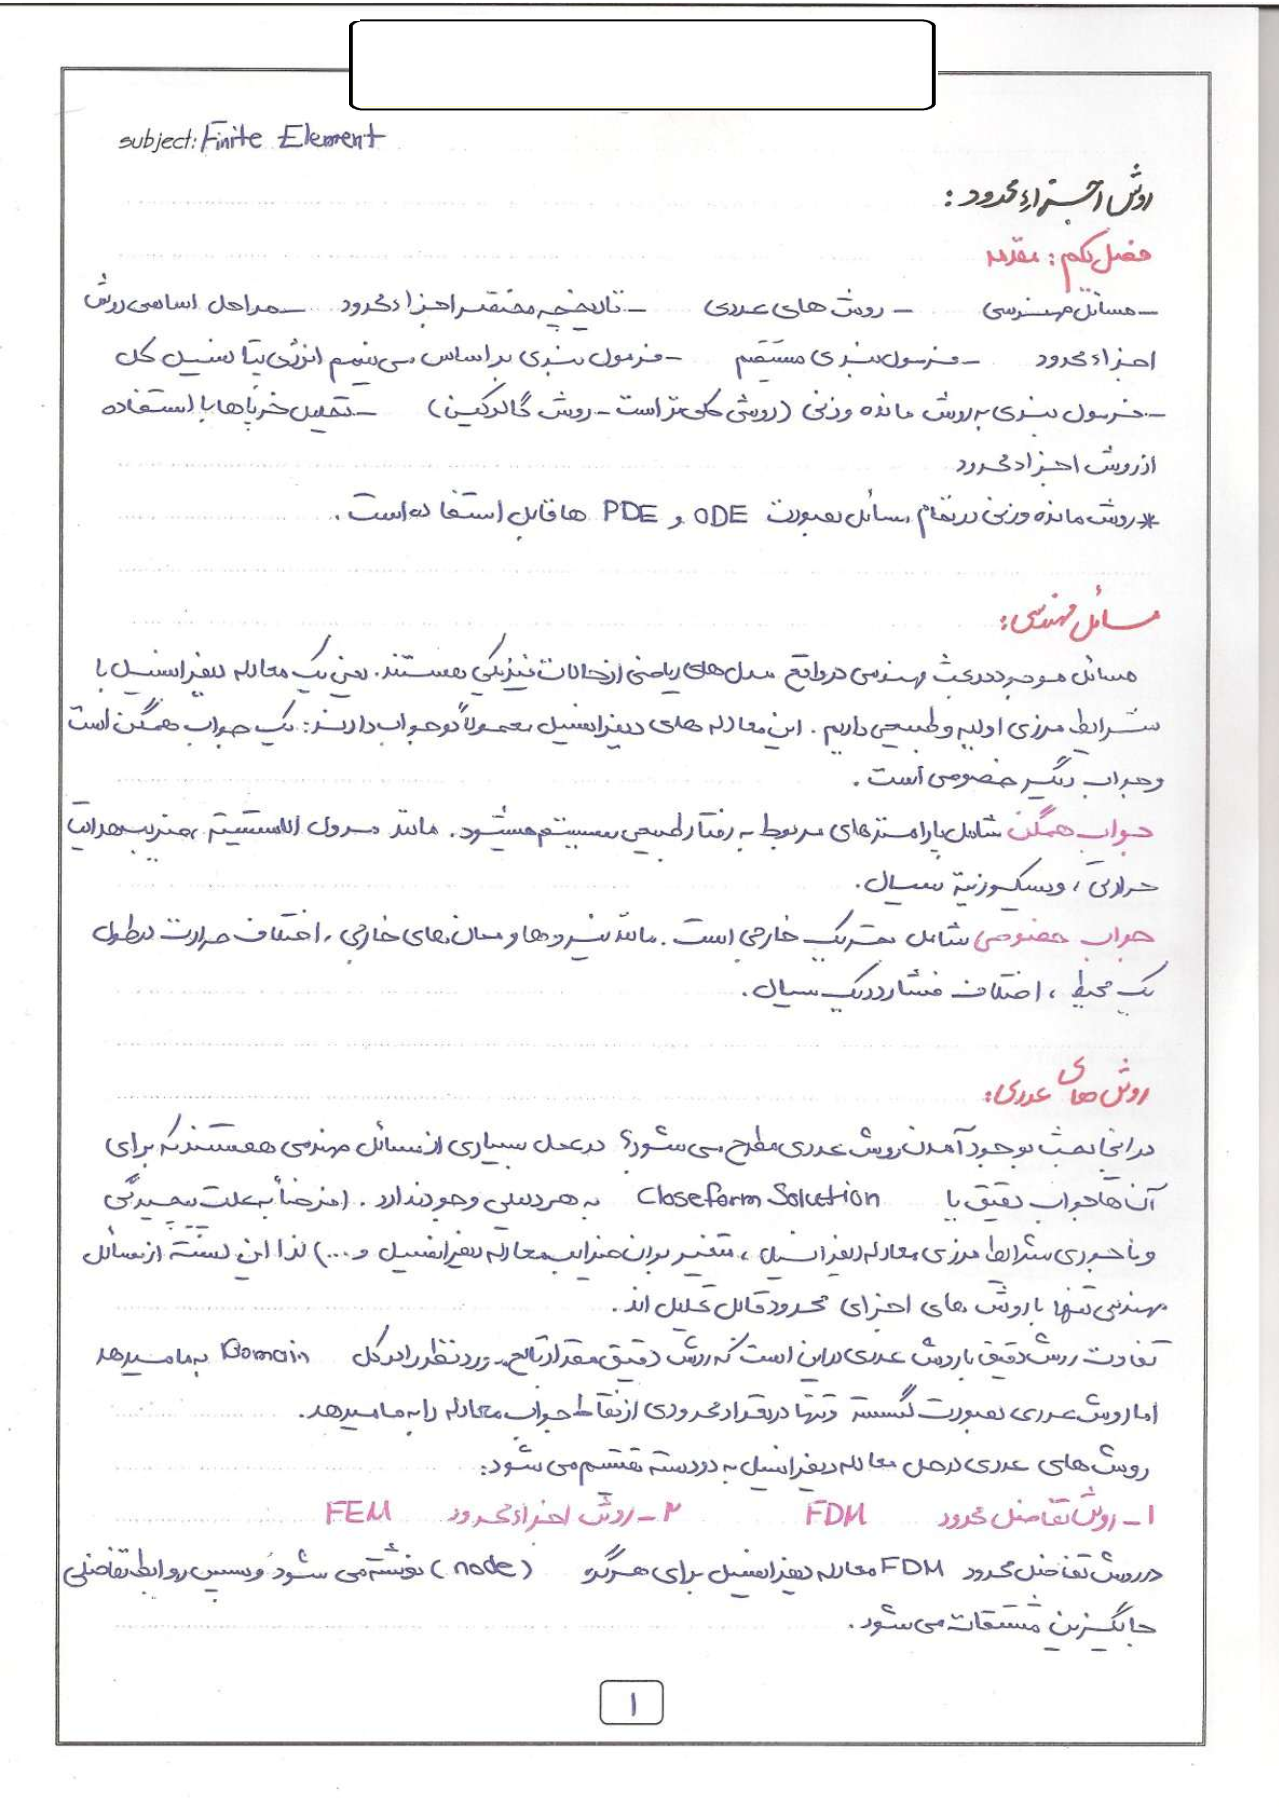 subject: Finite Element
روش اجزاء محدود :
فصل یکم : مقدمه
– مسائل مهندسی – روش های عددی – تاریخچه مختصر اجزاء محدود – مراحل اساسی روش
اجزاء محدود – فرمول بندی مستقیم – فرمول بندی بر اساس می نیمم انرژی پتانسیل کل
– فرمول بندی به روش مانده وزنی (روشی کلی تر است – روش گالرکین) – تحلیل خرپاها با استفاده
از روش اجزاء محدود
* روش مانده وزنی در تمام مسائل بصورت ODE و PDE ها قابل استفاده است .
مسائل مهندسی :
مسائل موجود در بحث مهندسی در واقع مدل های ریاضی از حالات فیزیکی هستند. یعنی یک معادله دیفرانسیل با
شرایط مرزی اولیه و طبیعی داریم . این معادله های دیفرانسیل معمولاً دو جواب دارند : یک جواب همگن است
و جواب دیگر خصوصی است .
جواب همگن شامل پارامترهای مربوط به رفتار طبیعی سیستم میشود. مانند مدول الاستیته ، ضریب هدایت
حرارتی ، ویسکوزیته سیال.
جواب خصوصی شامل تحریک خارجی است . مانند نیروها و ممان های خارجی ، اختلاف حرارت در طول
یک محیط ، اختلاف فشار در یک سیال .
روش های عددی :
در اینجا بحث بوجود آمدن روش عددی مطرح می شود؟ در عمل بسیاری از مسائل مهندسی هستند که برای
آن ها جواب دقیق یا Closeform Solution به هر دلیلی وجود ندارد . (فرضاً به علت پیچیدگی
و ناجوری شرایط مرزی معادله دیفرانسیل ، متغیر بودن ضرایب معادله دیفرانسیل و ...) لذا این دسته از مسائل
مهندسی تنها با روش های اجزای محدود قابل تحلیل اند .
تفاوت روش دقیق با روش عددی در این است که روش دقیق مقدار تابع مورد نظر را در کل Domain به ما میدهد
اما روش عددی بصورت گسسته و تنها در تعداد محدودی از نقاط جواب معادله را به ما میدهد .
روش های عددی در حل معادله دیفرانسیل به دو دسته تقسیم می شود :
۱ – روش تفاضل محدود FDM ۲ – روش اجزاء محدود FEM
در روش تفاضل محدود FDM معادله دیفرانسیل برای هر گره (node) نوشته می شود و سپس روابط تفاضلی
جایگزین مشتقات می شود .
۱